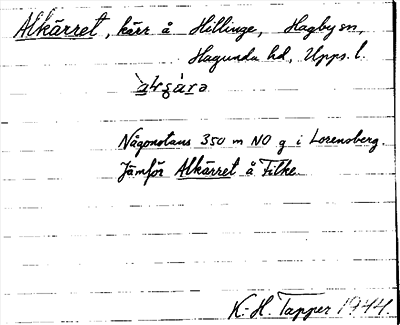 Alkärret, kärr å Hillinge, Hagby sn,
Hagunda hd, Upps. l.
Någonstans 350 m NO g i Lorensberg.
Jämför Alkärret å Fitke.
K.-H. Tapper 1944.